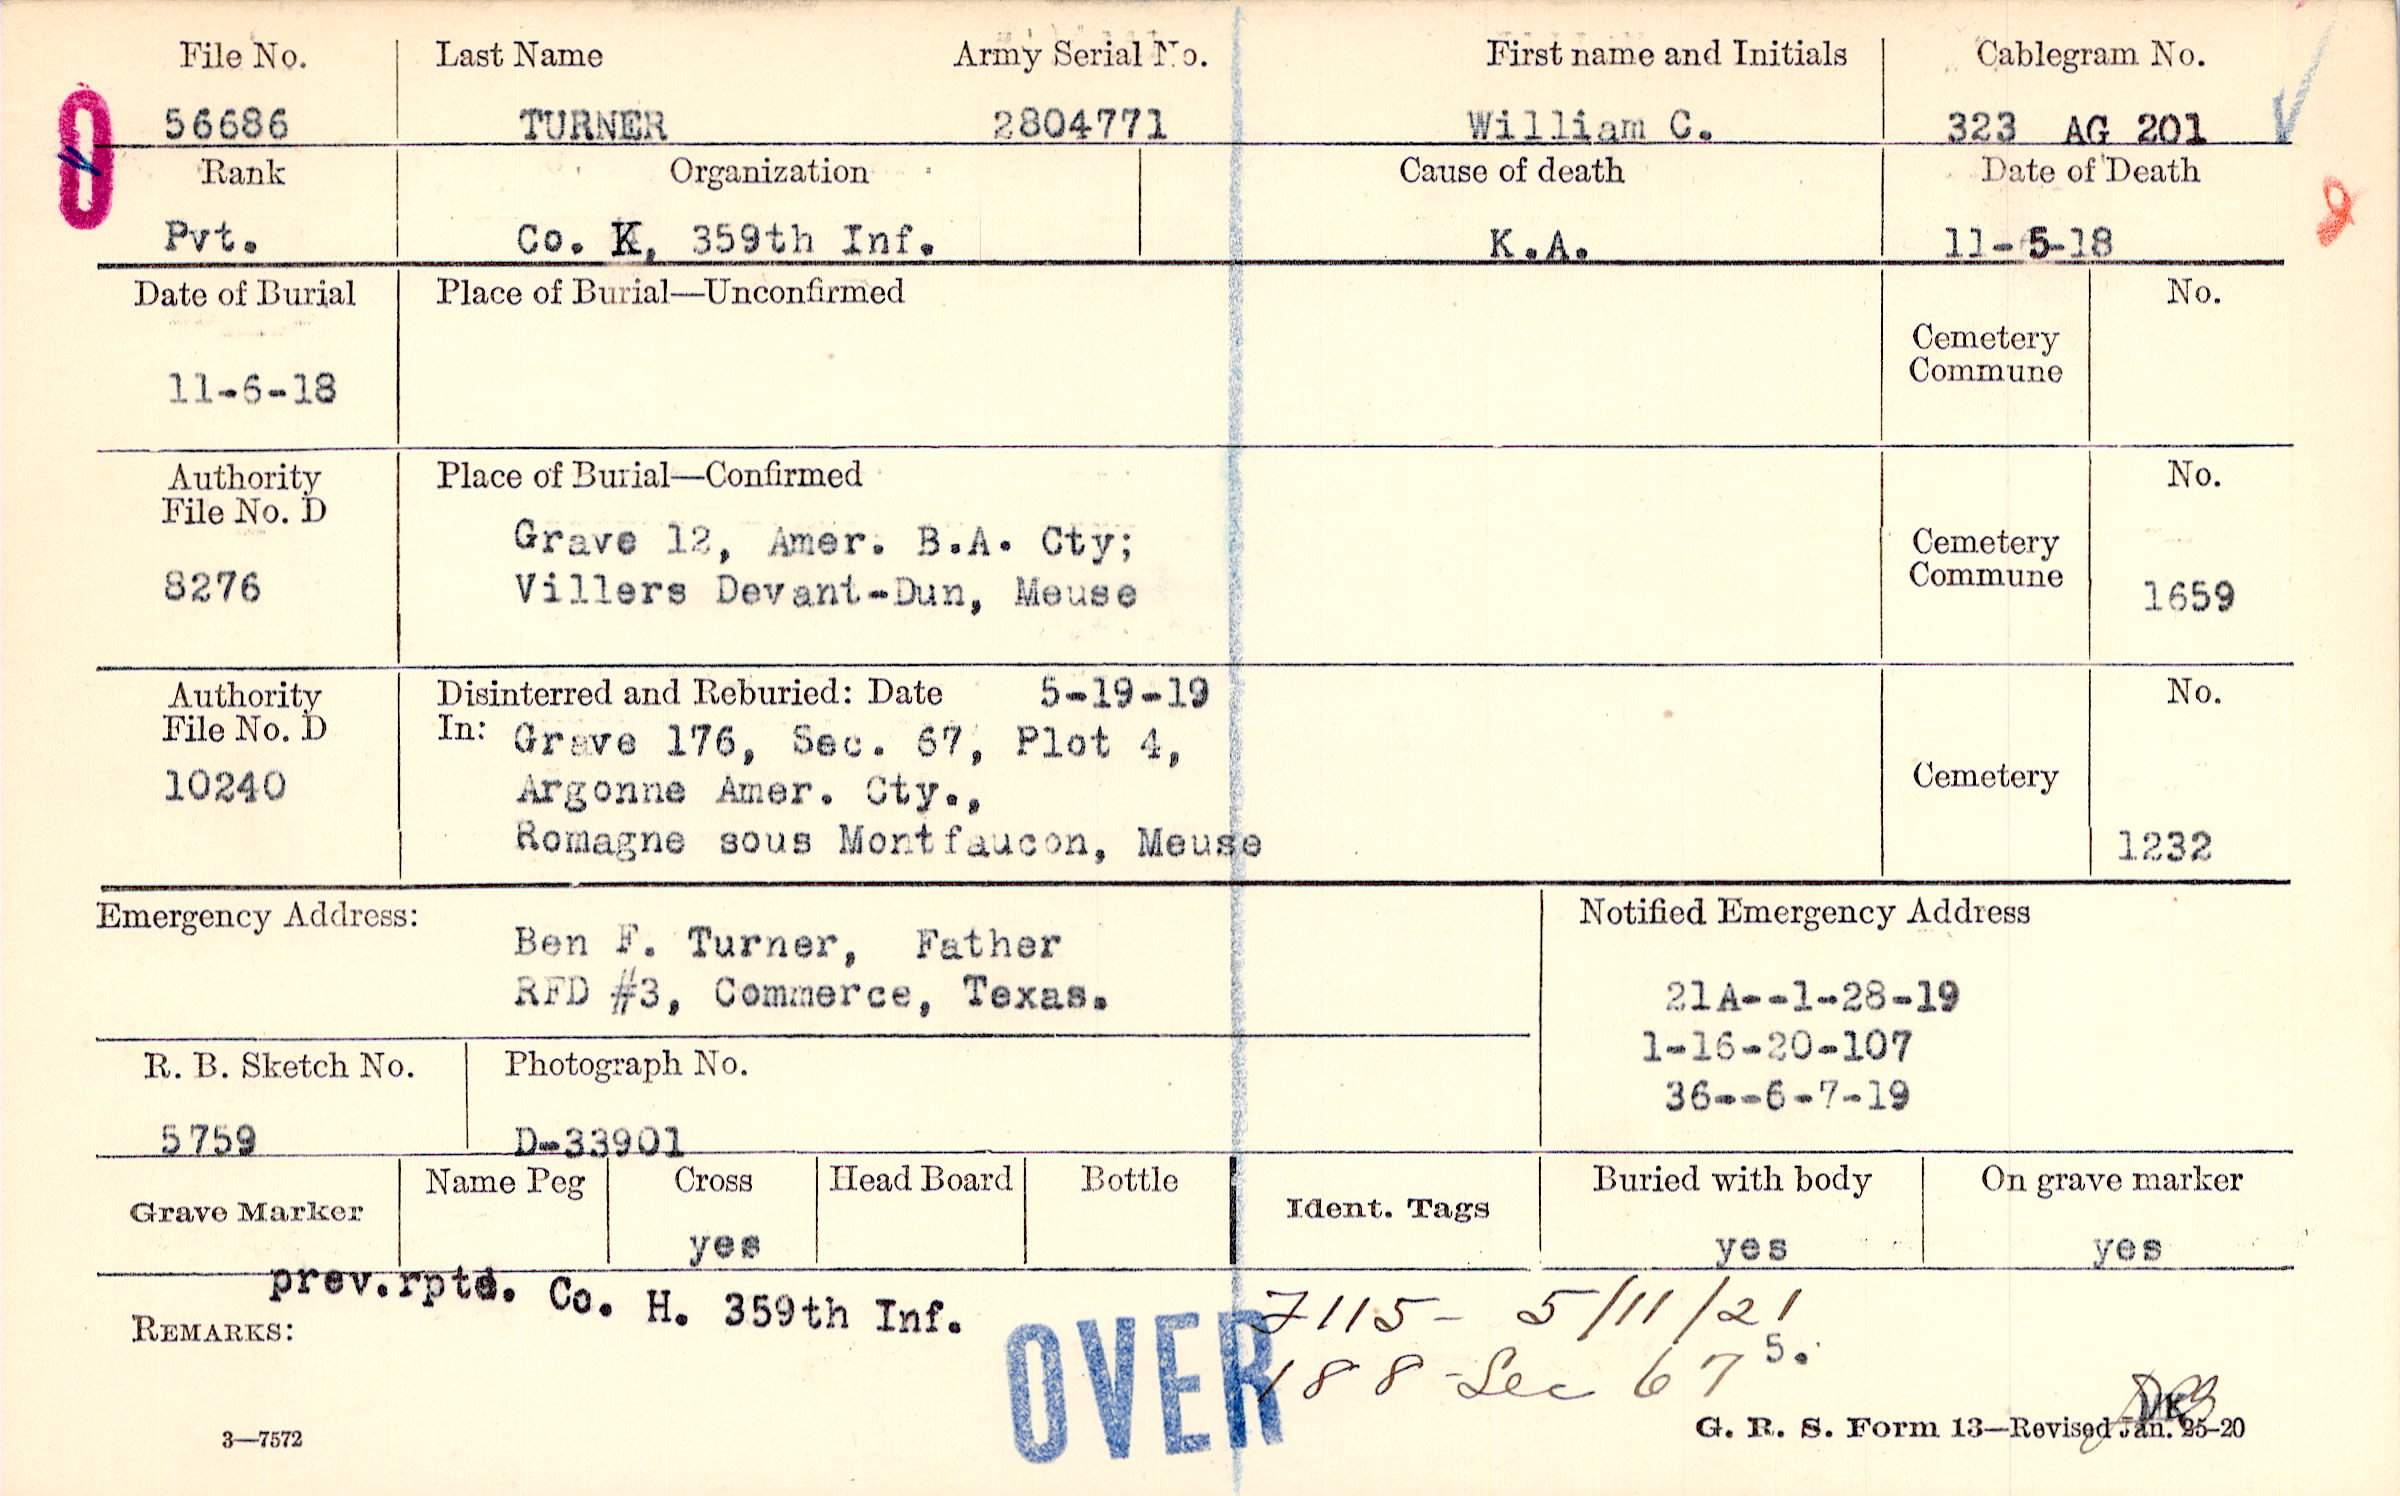 File No. Last Name Army Serial No. First name and Initials Cablegram No.
56686 TURNER 2804771 William C. 323 AG 201
Rank Organization Cause of death Date of Death
Pvt. Co. K, 359th Inf. K.A. 11-5-18
Date of Burial Place of Burial—Unconfirmed No.
Cemetery
Commune
11-6-18
Authority Place of Burial—Confirmed No.
File No. D
Grave 12, Amer. B.A. Cty; Cemetery
8276 Villers Devant-Dun, Meuse Commune 1659
Authority Disinterred and Reburied: Date 5-19-19 No.
File No. D In: Grave 176, Sec. 67, Plot 4,
10240 Argonne Amer. Cty., Cemetery
Romagne sous Montfaucon, Meuse 1232
Emergency Address: Notified Emergency Address
Ben F. Turner, Father
RFD #3, Commerce, Texas. 21A--1-28-19
1-16-20-107
R. B. Sketch No. Photograph No. 36--6-7-19
5759 D-33901
Name Peg Cross Head Board Bottle Buried with body On grave marker
Grave Marker Ident. Tags
yes yes yes
prev.rptd. Co. H. 359th Inf. 7115- 5/11/21
REMARKS: 5.
OVER 188-Sec 67
3—7572 G. R. S. Form 13—Revised Jan. 25-20